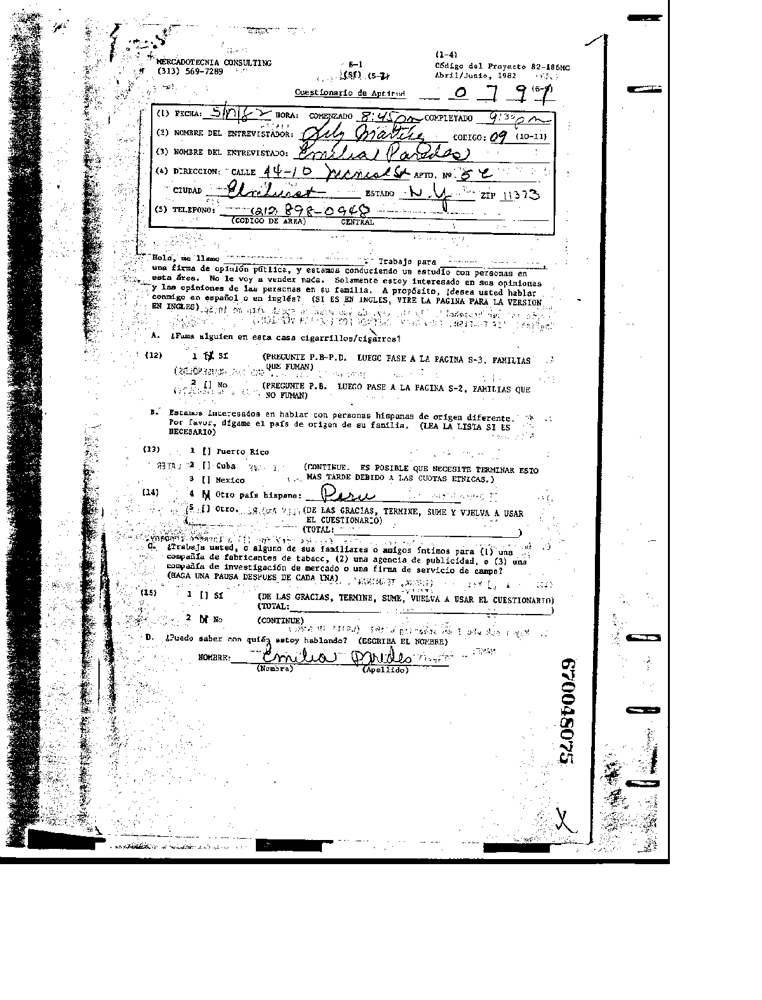 (1-4)
MERCADOTECNIA CONSULTING S-1 Código del Proyecto 82-186MC
(313) 569-7289 (5-7) Abril/Junio, 1982
Cuestionario de Aptitud 0 7 9
(1) FECHA: HORA: COMENZADO 8:45pm COMPLETADO
(2) NOMBRE DEL ENTREVISTADOR: CODIGO: 09 (10-11)
(3) NOMBRE DEL ENTREVISTADO: Emilia Paredes
(4) DIRECCION: CALLE 44-10 APTO. Nº 5E
CIUDAD Elmhurst ESTADO N.Y ZIP 11373
(5) TELEFONO: (212) 898-0948
(CODIGO DE AREA) CENTRAL
Hola, me llamo . Trabajo para
una firma de opinión pública, y estamos conduciendo un estudio con personas en
esta área. No le voy a vender nada. Solamente estoy interesado en sus opiniones
y las opiniones de las personas en su familia. A propósito, ¿desea usted hablar
conmigo en español o en inglés? (SI ES EN INGLES, VIRE LA PAGINA PARA LA VERSION
EN INGLES)
A. ¿Fuma alguien en esta casa cigarrillos/cigarros?
(12) 1 [X] Sí (PREGUNTE P.B-P.D. LUEGO PASE A LA PAGINA S-3, FAMILIAS
QUE FUMAN)
2 [] No (PREGUNTE P.B. LUEGO PASE A LA PAGINA S-2, FAMILIAS QUE
NO FUMAN)
B. Estamos interesados en hablar con personas hispanas de origen diferente.
Por favor, dígame el país de origen de su familia. (LEA LA LISTA SI ES
NECESARIO)
(13) 1 [] Puerto Rico
2 [] Cuba (CONTINUE. ES POSIBLE QUE NECESITE TERMINAR ESTO
3 [] Mexico MAS TARDE DEBIDO A LAS CUOTAS ETNICAS.)
(14) 4 [X] Otro país hispano: Peru
5 [] Otro. (DE LAS GRACIAS, TERMINE, SUME Y VUELVA A USAR
EL CUESTIONARIO)
(TOTAL: )
C. ¿Trabaja usted, o alguno de sus familiares o amigos íntimos para (1) una
compañía de fabricantes de tabaco, (2) una agencia de publicidad, o (3) una
compañía de investigación de mercado o una firma de servicio de campo?
(HAGA UNA PAUSA DESPUES DE CADA UNA)
(15) 1 [] Sí (DE LAS GRACIAS, TERMINE, SUME, VUELVA A USAR EL CUESTIONARIO)
(TOTAL: )
2 [X] No (CONTINUE)
D. ¿Puedo saber con quién estoy hablando? (ESCRIBA EL NOMBRE)
NOMBRE: Emilia
(Nombre) (Apellido)
670048075
X